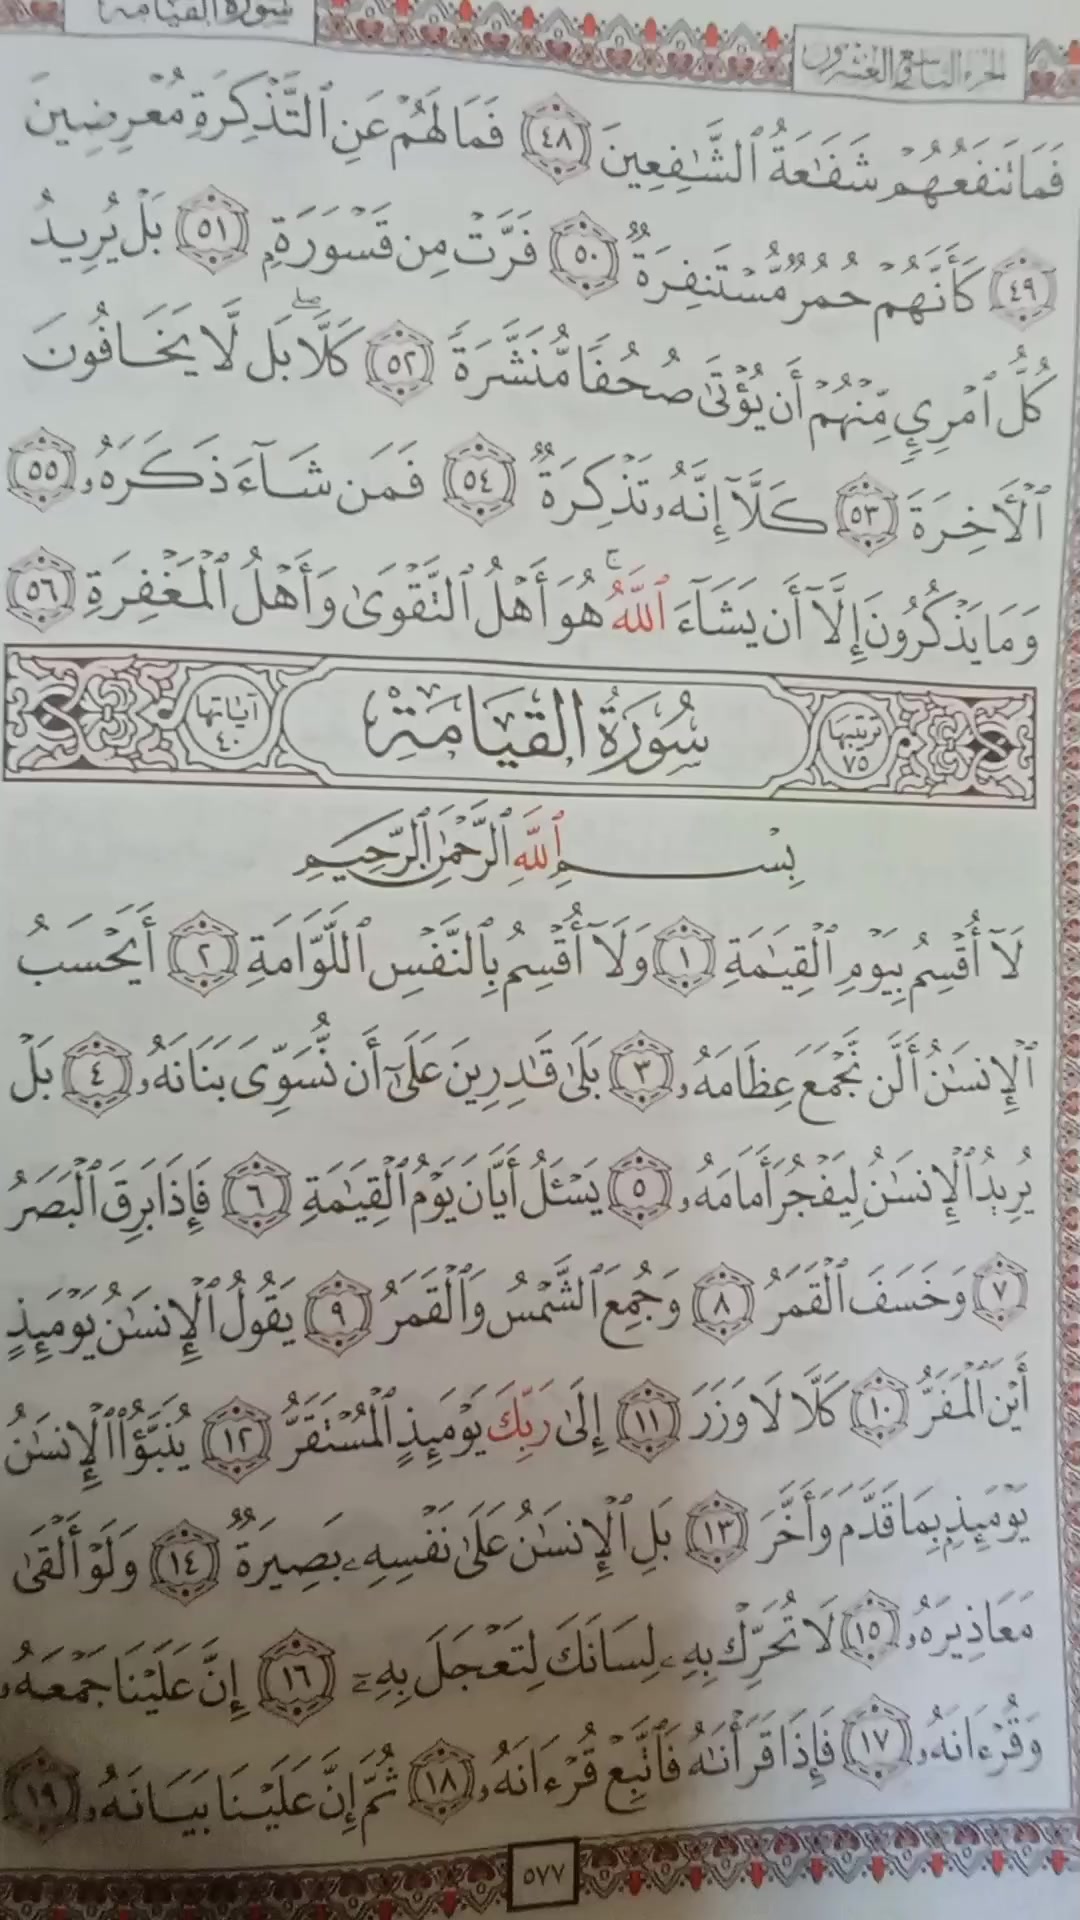 الجزء التاسع والعشرون
سورة القيامة
فَمَا تَنفَعُهُمْ شَفَٰعَةُ ٱلشَّٰفِعِينَ ٤٨ فَمَا لَهُمْ عَنِ ٱلتَّذْكِرَةِ مُعْرِضِينَ
٤٩ كَأَنَّهُمْ حُمُرٌ مُّسْتَنفِرَةٌ ٥٠ فَرَّتْ مِن قَسْوَرَةٍۭ ٥١ بَلْ يُرِيدُ
كُلُّ ٱمْرِئٍ مِّنْهُمْ أَن يُؤْتَىٰ صُحُفًا مُّنَشَّرَةً ٥٢ كَلَّاۖ بَل لَّا يَخَافُونَ
ٱلْأَخِرَةَ ٥٣ كَلَّآ إِنَّهُۥ تَذْكِرَةٌ ٥٤ فَمَن شَآءَ ذَكَرَهُۥ ٥٥
وَمَا يَذْكُرُونَ إِلَّآ أَن يَشَآءَ ٱللَّهُۚ هُوَ أَهْلُ ٱلتَّقْوَىٰ وَأَهْلُ ٱلْمَغْفِرَةِ ٥٦
ترتيبها ٧٥ سُورَةُ القِيَامَةِ آياتها ٤٠
بِسْمِ ٱللَّهِ ٱلرَّحْمَٰنِ ٱلرَّحِيمِ
لَآ أُقْسِمُ بِيَوْمِ ٱلْقِيَٰمَةِ ١ وَلَآ أُقْسِمُ بِٱلنَّفْسِ ٱللَّوَّامَةِ ٢ أَيَحْسَبُ
ٱلْإِنسَٰنُ أَلَّن نَّجْمَعَ عِظَامَهُۥ ٣ بَلَىٰ قَٰدِرِينَ عَلَىٰٓ أَن نُّسَوِّىَ بَنَانَهُۥ ٤ بَلْ
يُرِيدُ ٱلْإِنسَٰنُ لِيَفْجُرَ أَمَامَهُۥ ٥ يَسْـَٔلُ أَيَّانَ يَوْمُ ٱلْقِيَٰمَةِ ٦ فَإِذَا بَرِقَ ٱلْبَصَرُ
٧ وَخَسَفَ ٱلْقَمَرُ ٨ وَجُمِعَ ٱلشَّمْسُ وَٱلْقَمَرُ ٩ يَقُولُ ٱلْإِنسَٰنُ يَوْمَئِذٍ
أَيْنَ ٱلْمَفَرُّ ١٠ كَلَّا لَا وَزَرَ ١١ إِلَىٰ رَبِّكَ يَوْمَئِذٍ ٱلْمُسْتَقَرُّ ١٢ يُنَبَّؤُا۟ ٱلْإِنسَٰنُ
يَوْمَئِذٍۭ بِمَا قَدَّمَ وَأَخَّرَ ١٣ بَلِ ٱلْإِنسَٰنُ عَلَىٰ نَفْسِهِۦ بَصِيرَةٌ ١٤ وَلَوْ أَلْقَىٰ
مَعَاذِيرَهُۥ ١٥ لَا تُحَرِّكْ بِهِۦ لِسَانَكَ لِتَعْجَلَ بِهِۦٓ ١٦ إِنَّ عَلَيْنَا جَمْعَهُۥ
وَقُرْءَانَهُۥ ١٧ فَإِذَا قَرَأْنَٰهُ فَٱتَّبِعْ قُرْءَانَهُۥ ١٨ ثُمَّ إِنَّ عَلَيْنَا بَيَانَهُۥ ١٩
٥٧٧